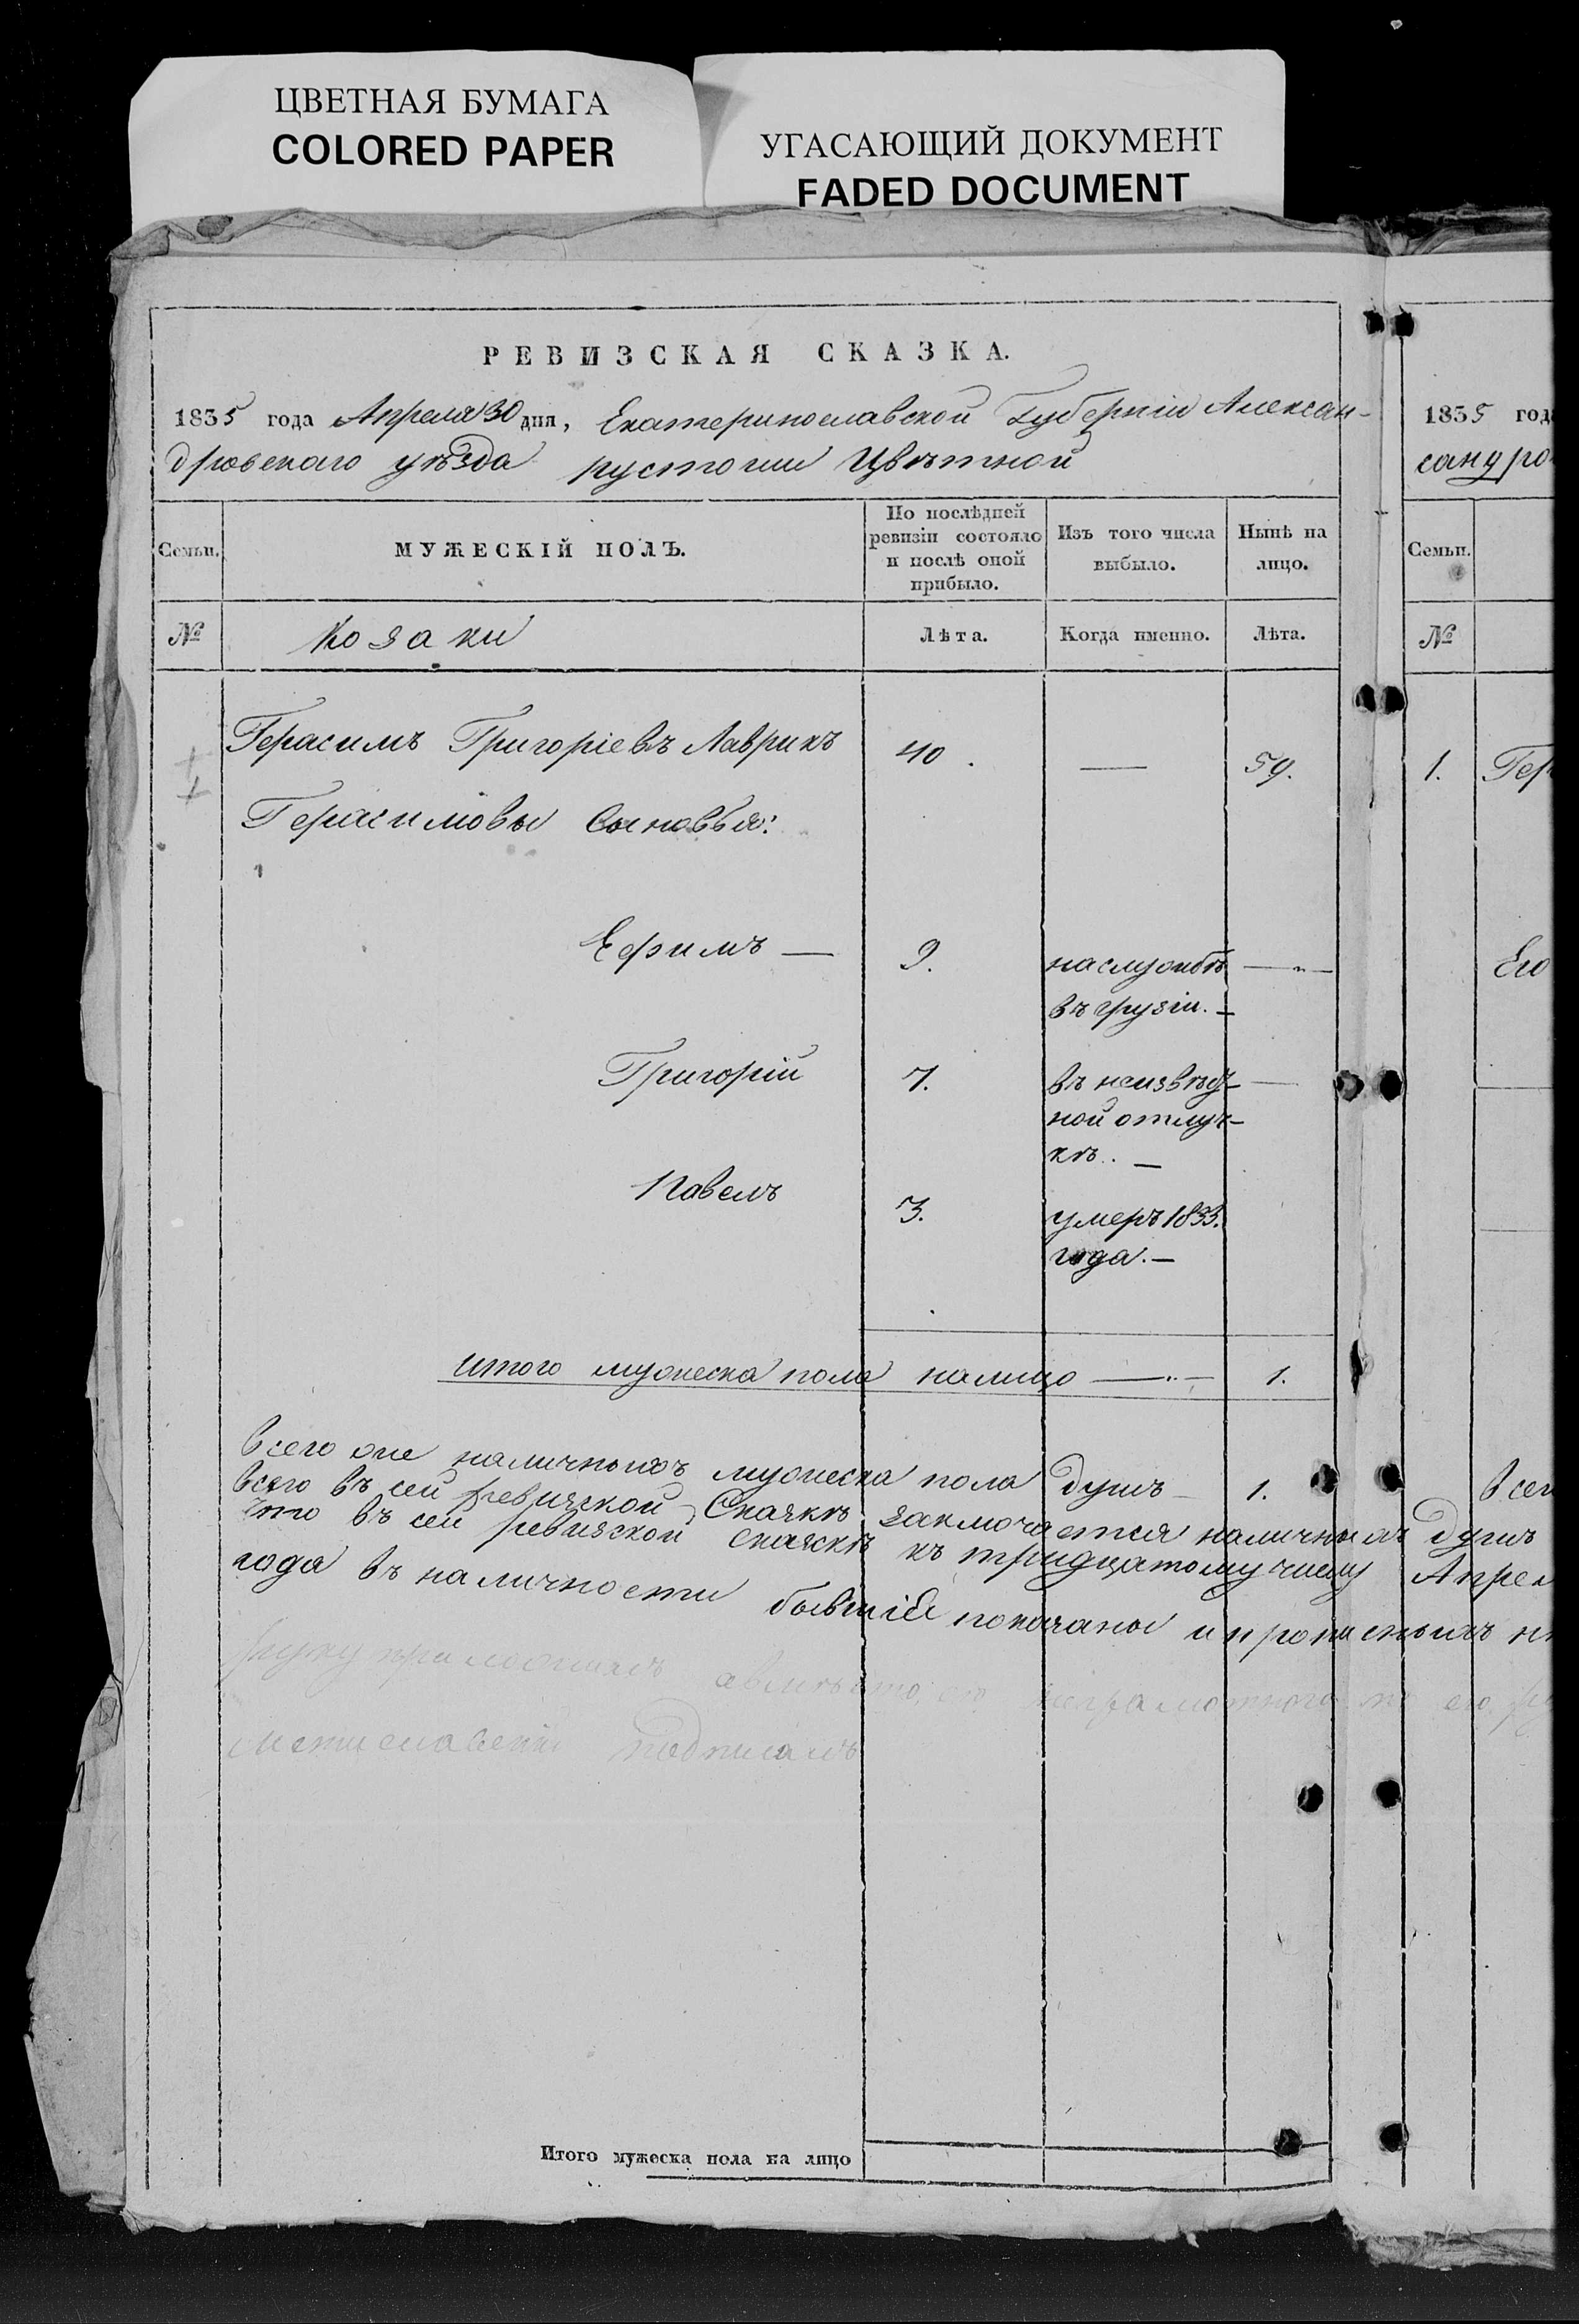 ЦВЕТНАЯ БУМАГА
COLORED PAPER
УГАСАЮЩИЙ ДОКУМЕНТ
FADED DOCUMENT
РЕВИЗСКАЯ СКАЗКА.
1835 года Апреля 30 дня, Екатеринославской Губерніи Алексан-
дровскаго уѣзда пустоши Цвѣтной
Семьи.
МУЖЕСКІЙ ПОЛЪ.
По послѣдней
ревизіи состояло
и послѣ оной
прибыло.
Изъ того числа
выбыло.
Нынѣ на
лицо.
№
Козаки
Лѣта.
Когда именно.
Лѣта.
Герасимъ Григоріевъ Лаврикъ 40. — 59.
Герасимовы Сыновья:
Ефимъ — 9. на службѣ —„—
въ Грузіи. —
Григорій 7. въ неизвѣст- —
ной отлуч-
кѣ. —
Павелъ 3. умеръ 1833.
года. —
Итого мужеска пола налицо — 1.
Всего оне наличныхъ мужеска пола душъ — 1.
Всего въ сей ревизской Сказкѣ заключается наличныхъ душъ
Что въ сей ревизской сказкѣ къ тридцатому числу Апрел
года въ наличности бывшіе показаны и прописныхъ
руку приложилъ
подписалъ
Итого мужеска пола на лицо
1835 год
Семьи.
№
1. Гер
Его
Всег